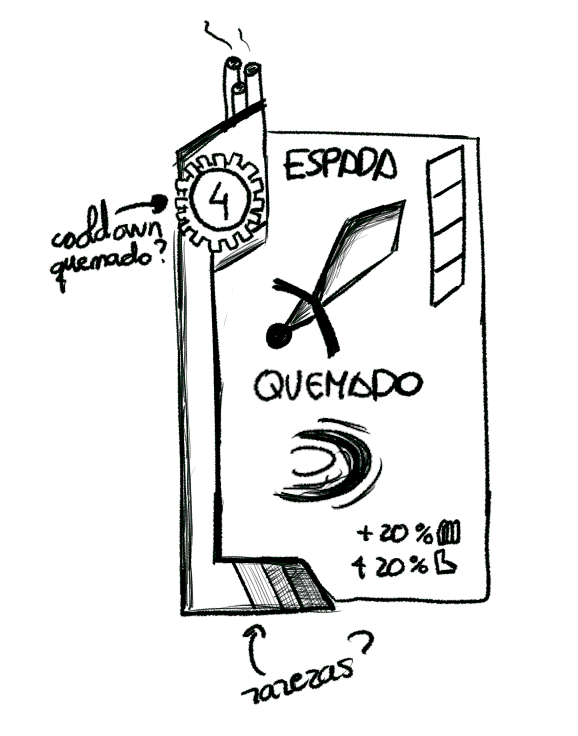 ESPADA
4
cooldown
quemado?
QUEMADO
+20%
+20%
rarezas?